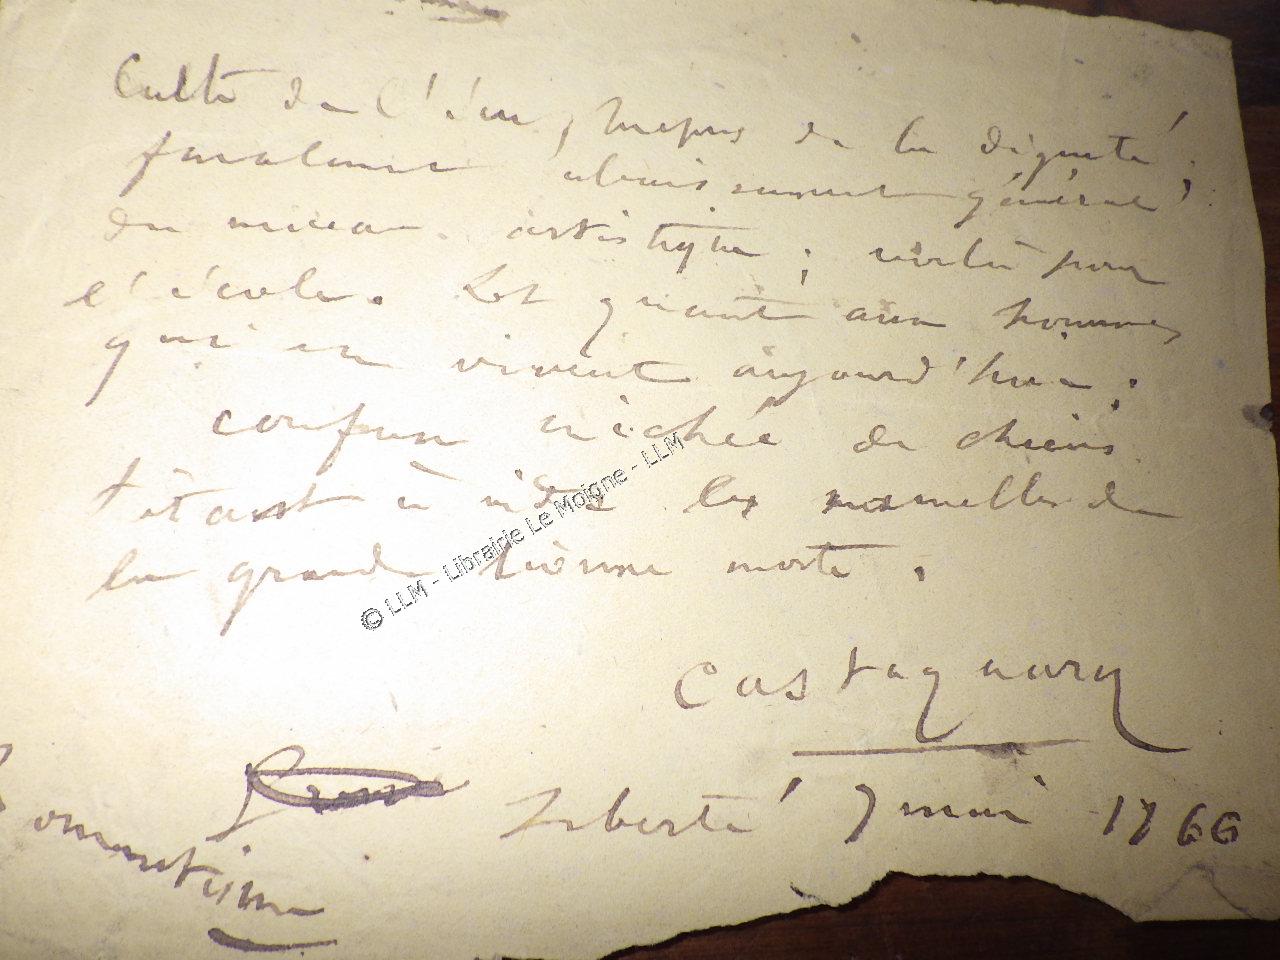 Culte de l'écu, mépris de la dignité,
finalement abaissement général
du niveau artistique ; voilà pour
l'école. Et quant aux hommes
qui en vivent aujourd'hui :
confuse nichée de chiens
têtant à vide les mamelles de
la grande lionne morte.
Castagnary
Liberté 7 mai 1866
Romantisme
© LLM - Librairie Le Moigne - LLM